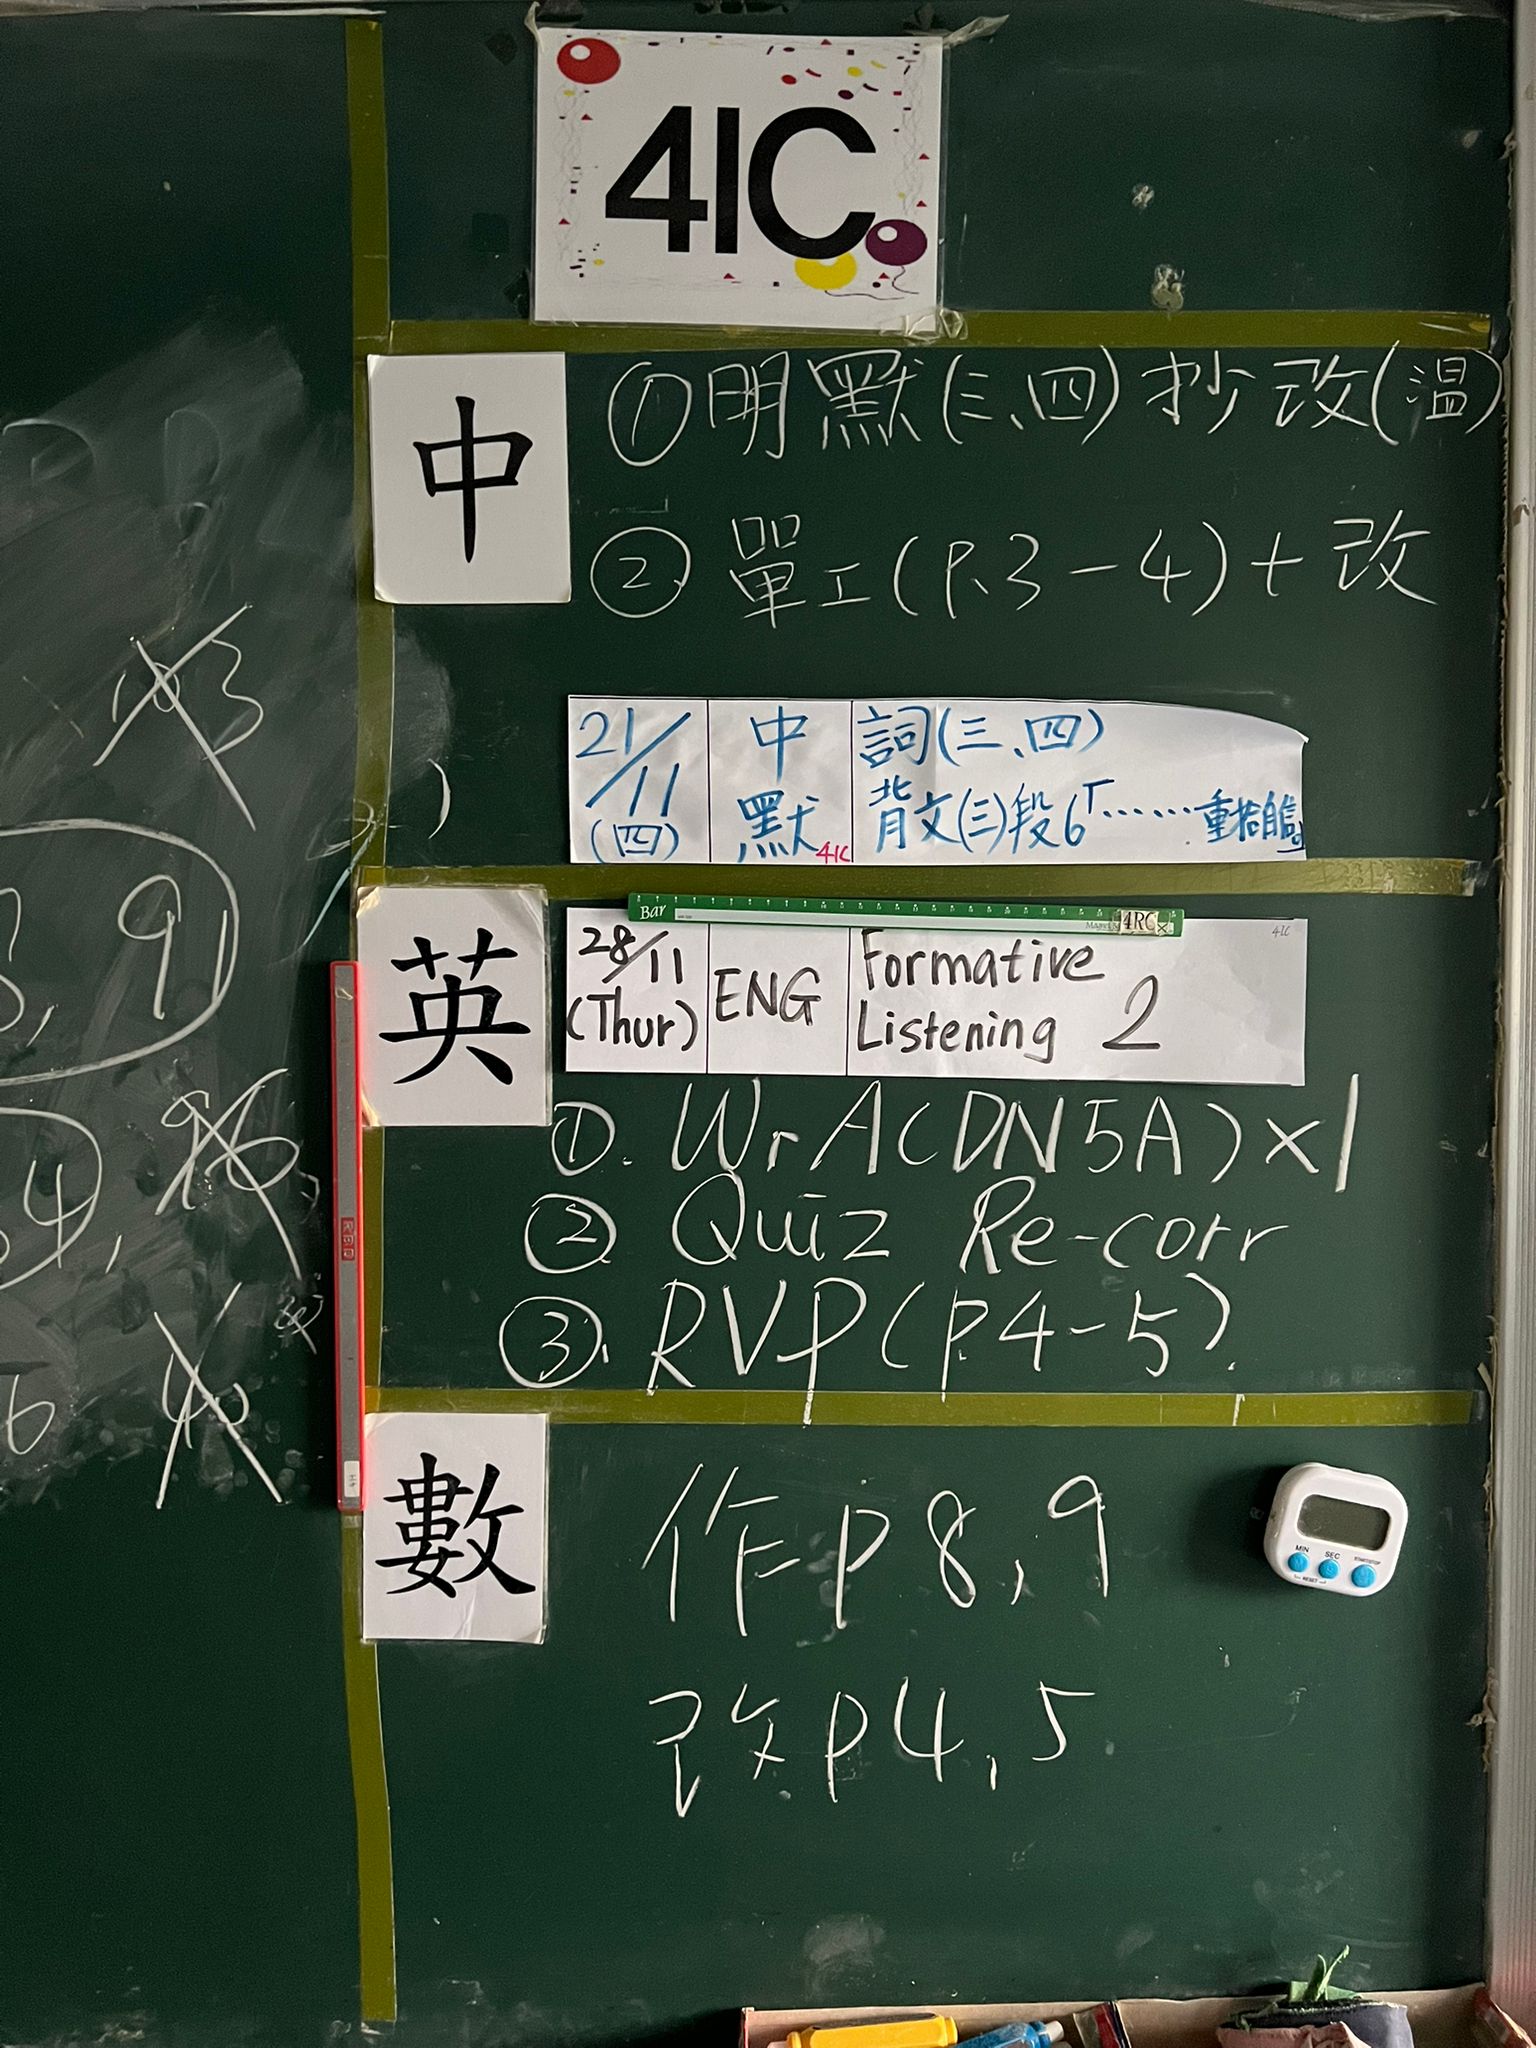 4IC
中
①明默(三、四)抄改(溫)
② 單工(P.3-4)+改
21/11 (四) 中默 4IC 詞(三、四)
背文(三)段6「……重拾自信。」
英
Bar
4RC
28/11 (Thur) ENG Formative Listening 2
4IC
①. Wr A(DN5A)×1
② Quiz Re-corr
③. RVP(p.4-5).
數
作P8,9
改P4,5
MIN SEC START/STOP
RESET
3, 9
4,
6